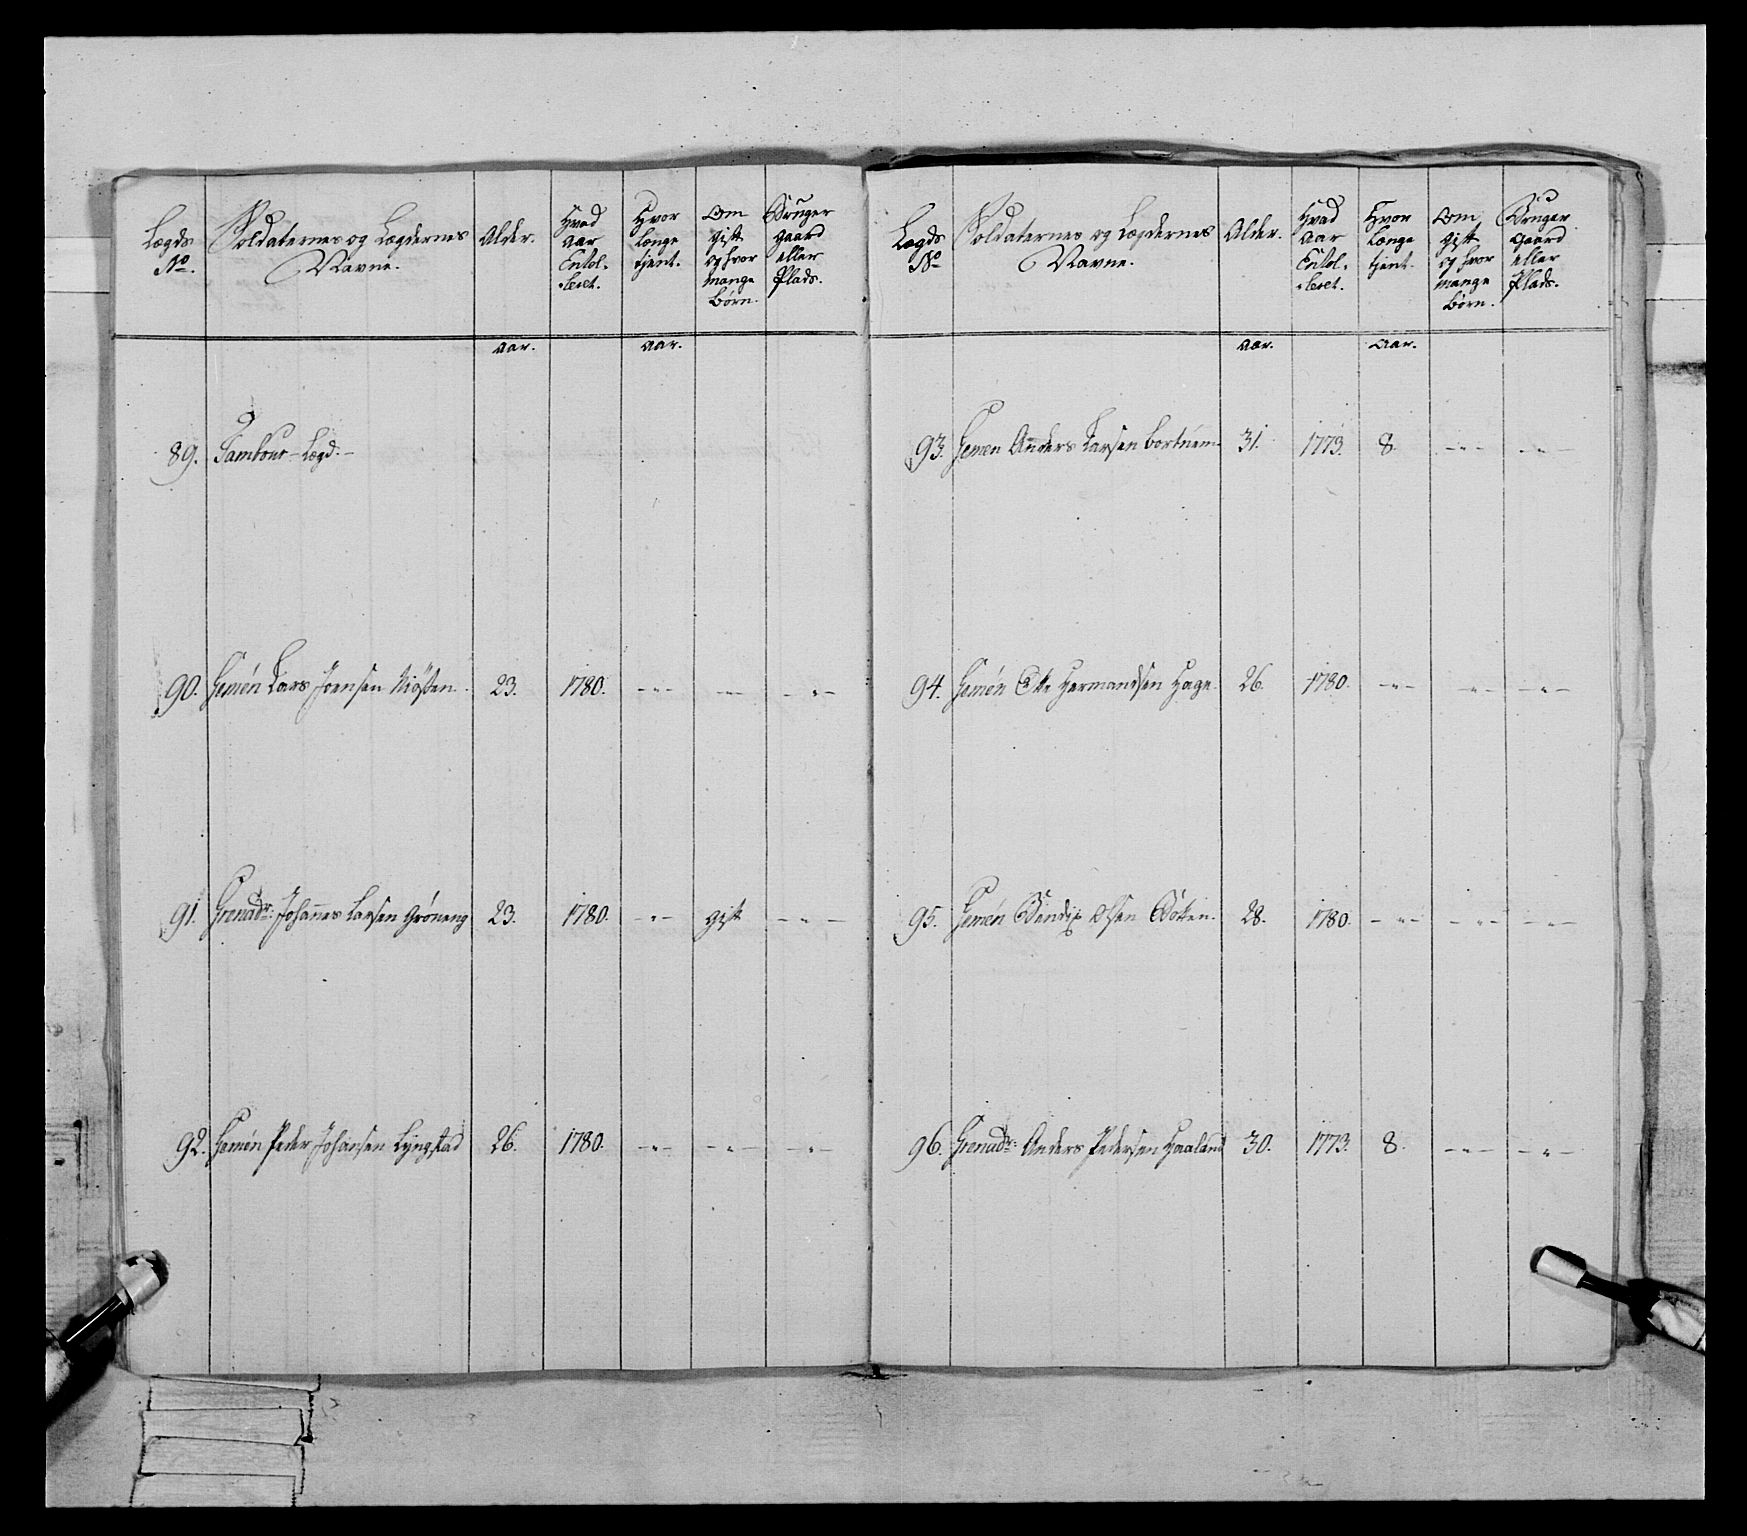 Lægds No. Soldaternes og Lægdernes Navne. Alder. Hvad Aar Enrol-leret. Hvor længe tient. Om gift og hvor mange Børn. Bruger gaard eller Plads.
Aar. Aar.
89. Tambour-Lægd.-
90. Gemén Lars Joensen 23. 1780. -"- -"- -"-
91. Grenadr: Johannes Larsen Gröneng 23. 1780. -"- gift -"-
92. Gemén Peder Johansen Lÿngstad 26. 1780. -"- -"- -"-
Lægds No Soldaternes og Lægdernes Navne. Alder. Hvad Aar Enrol-leret. Hvor længe tient. Om gift og hvor mange Børn. Bruger gaard eller Plads.
Aar. Aar.
93. Gemen Anders Larsen 31. 1773. 8. -"- -"-
94. Gemén Ole Hermandsen Hage 26. 1780. -"- -"- -"-
95. Gemén Bendix Olsen 28. 1780. -"- -"- -"-
96. Grenadr: Anders Pedersen Haaland 30. 1773. 8. -"- -"-